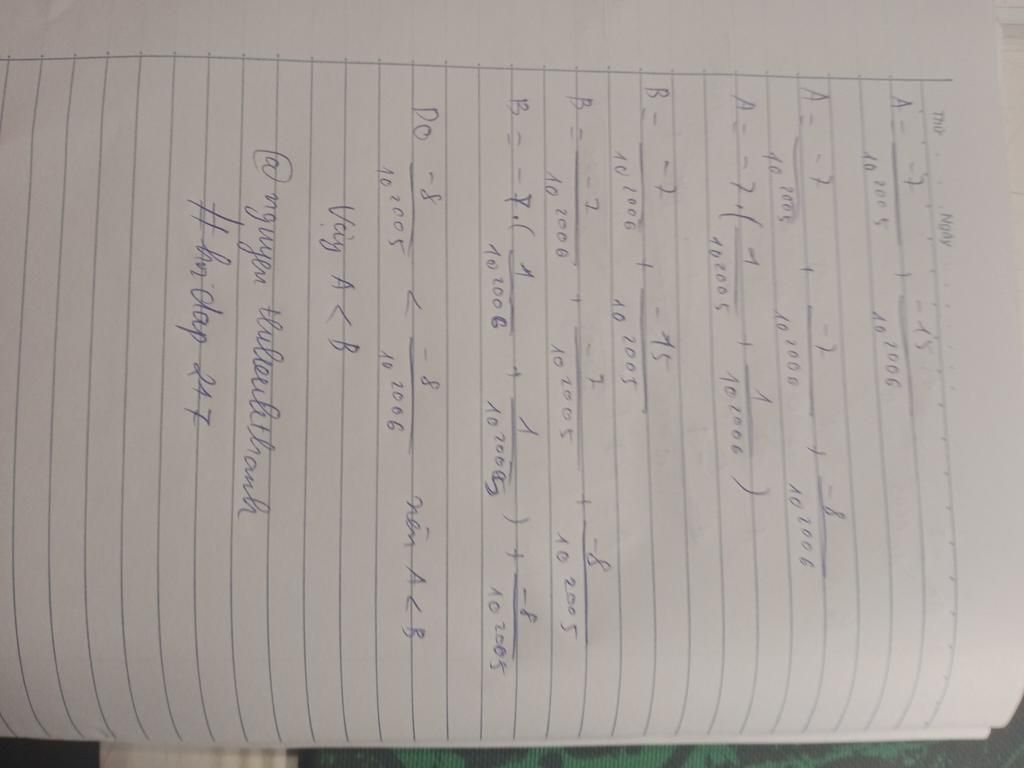 Thứ Ngày
A = -7/10^2005 + -15/10^2006
A = -7/10^2005 + -7/10^2006 + -8/10^2006
A = -7.(1/10^2005 + 1/10^2006)
B = -7/10^2006 + -15/10^2005
B = -7/10^2006 + -7/10^2005 + -8/10^2005
B = -7.(1/10^2006 + 1/10^2005) + -8/10^2005
Do -8/10^2005 < -8/10^2006 nên A < B
Vậy A < B
# hoidap 247